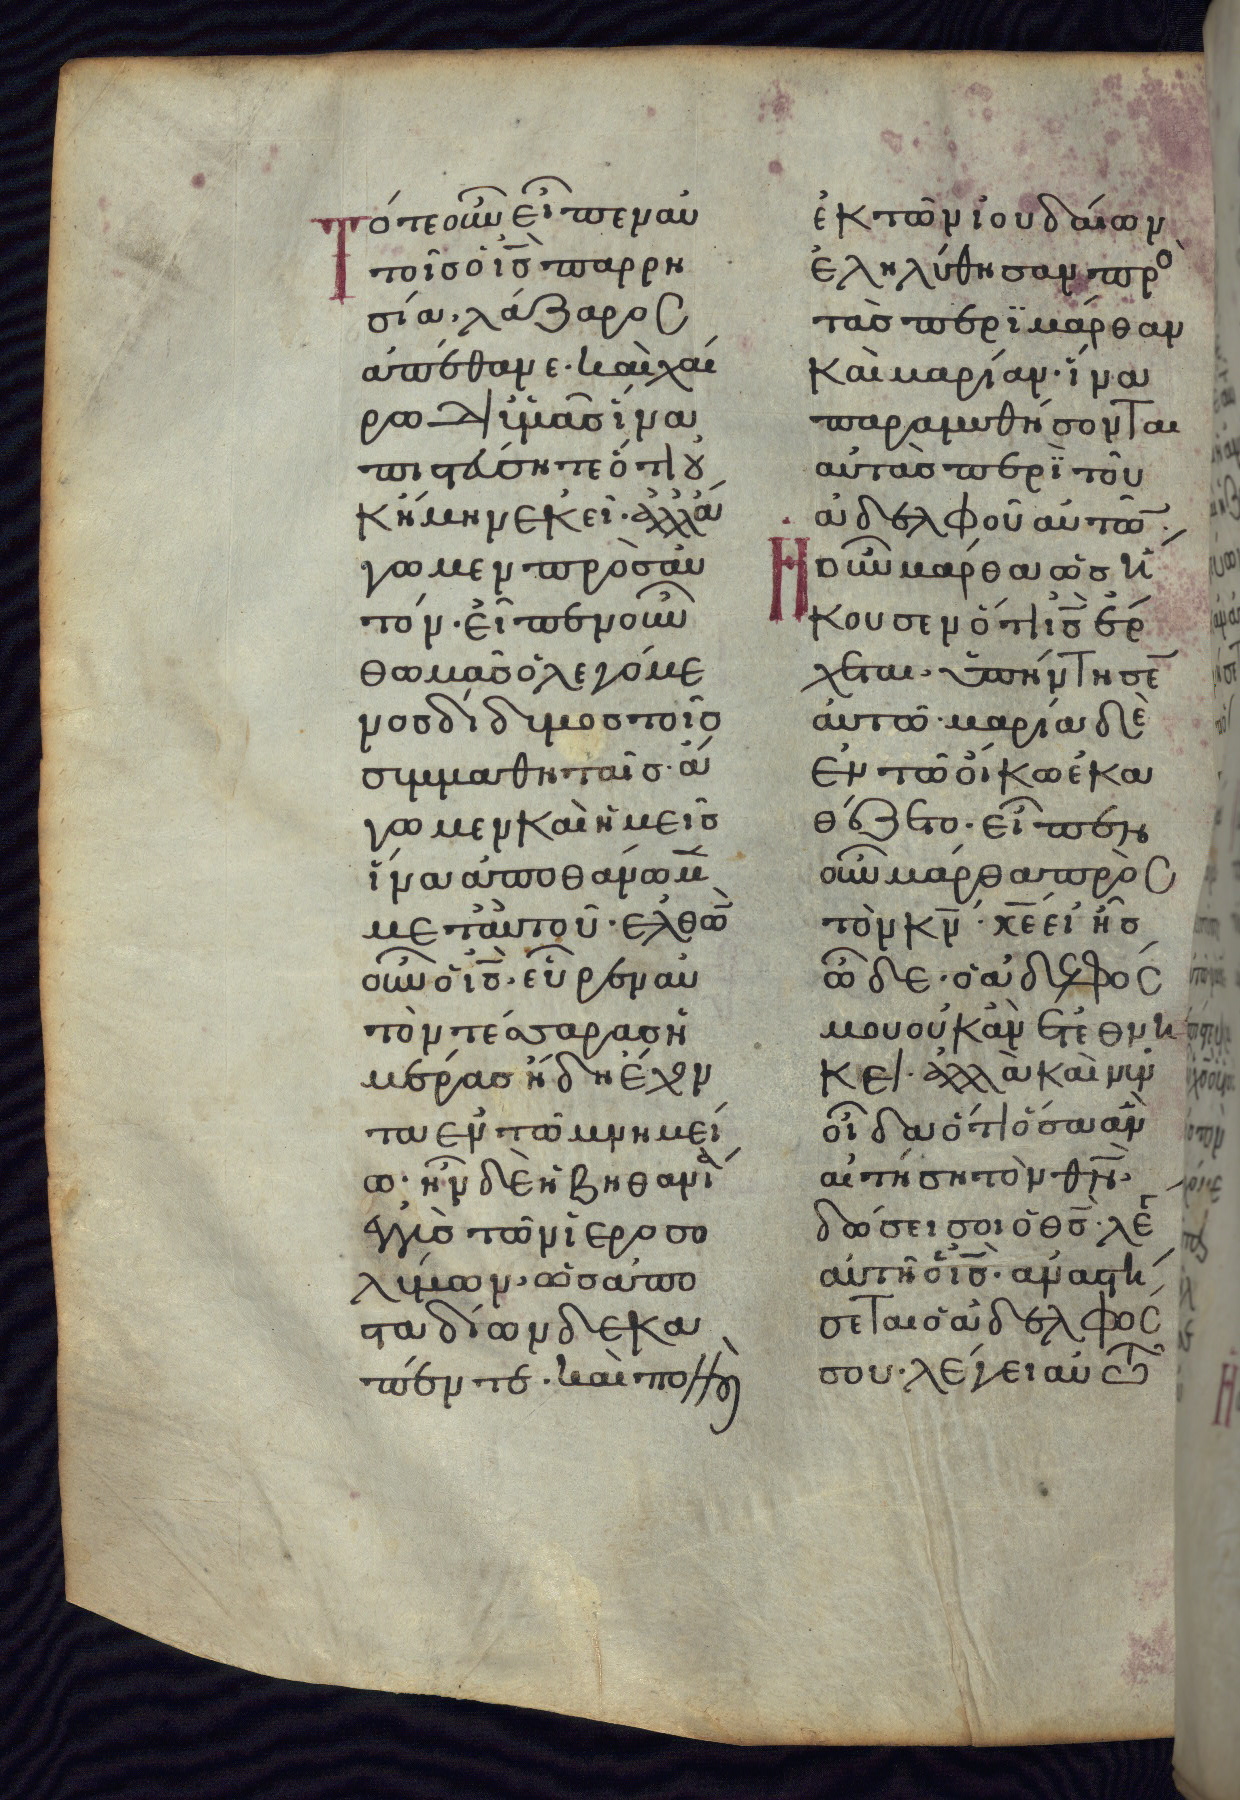 Τότε οὖν εἶπεν αὐ
τοῖς ὁ ις̅ παρρη
σία· λάζαρος
ἀπέθανε· καὶ χαί
ρω δι ἡμᾶς ἵνα
πιστεύσητε ὅτι οὐ
κ ἤμην ἐκεῖ· ἀλλ ἄ
γωμεν πρὸς αὐ
τόν· εἶπεν οὖν
θωμᾶς ὁ λεγόμε
νος δίδιμος τοῖς
συμμαθηταῖς· ἄ
γωμεν καὶ ἡμεῖς
ἵνα ἀποθάνωμ̅
μετ αὐτοῦ· ἐλθω̅
οὖν ὁ ις̅· εὗρεν αὐ
τὸν τέσσαρας ἡ
μέρας ἤδη ἔχον
τα ἐν τῶ μνημεί
ω· ἦν δὲ ἡ βηθανία
ἐγγὺς τῶν ἱεροσο
λίμων· ὡς ἀπὸ
σταδίων δεκα
πέντε· καὶ πολλοὶ
ἐκ τῶν ἰουδαίων
ἐληλύθησαν πρὸ
τὰς περὶ μάρθαν
καὶ μαρίαν· ἵνα
παραμυθήσονται
αὐτὰς περὶ τοῦ
ἀδελφοῦ αὐτω̅·
Η οὖν μάρθα ὡς ἤ
κουσεν ὅτι ις̅ ἔρ
χεται· ὑπήντησε̅
αὐτῶ· μαρία δὲ
ἐν τῶ οἴκω ἐκα
θέζετο· εἶπεν
οὖν μάρθα πρὸς
τὸν κν̅· κε̅ εἰ ἦς
ὧδε· ὁ ἀδελφός
μου οὐκ ἂν ἐτεθνή
κει· ἀλλὰ καὶ νῦν
οἶδα ὅτι ὅσα ἂν
αἰτήση τὸν θν̅·
δώσει σοι ὁ θς̅· λέγ
αὐτῆ ὁ ις̅· αναστή
σεται ὁ ἀδελφός
σου· λέγει αὐτω